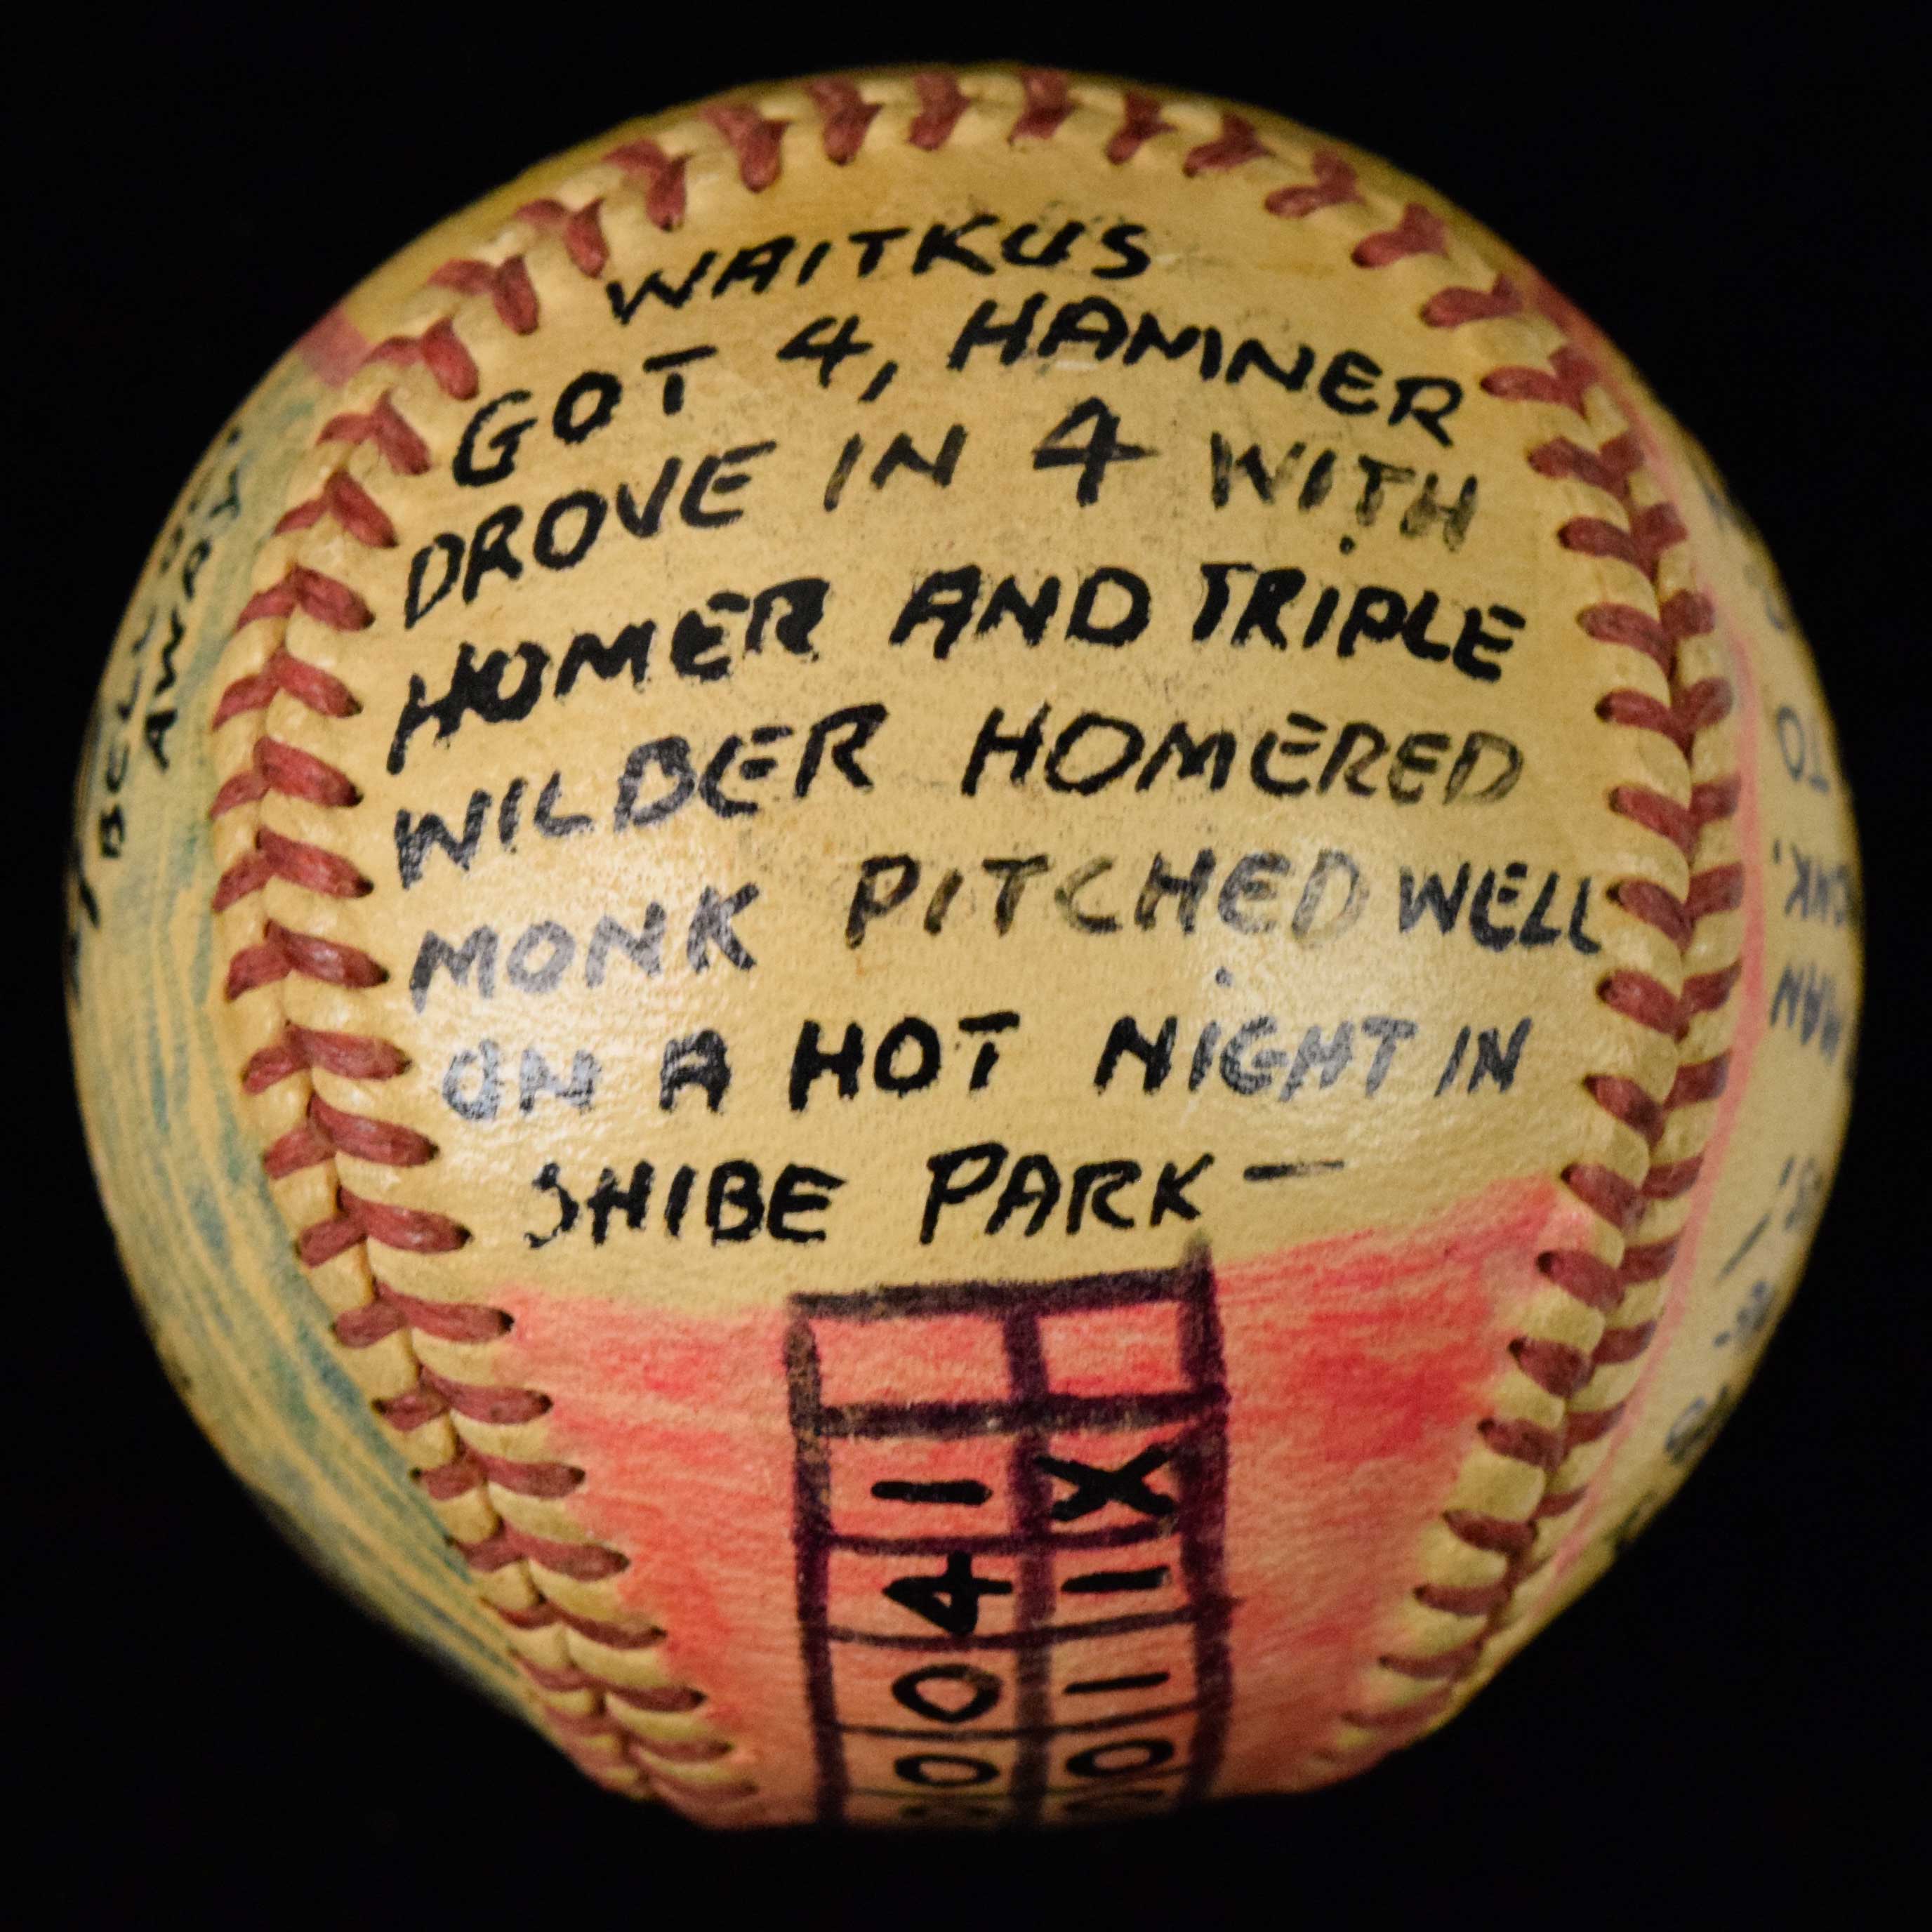 WAITKUS
GOT 4, HAMNER
DROVE IN 4 WITH
HOMER AND TRIPLE
WILBER HOMERED
MONK PITCHED WELL
ON A HOT NIGHT IN
SHIBE PARK—
0 0 4 1
0 1 1 X
BELL
AWAY
TO
MAN